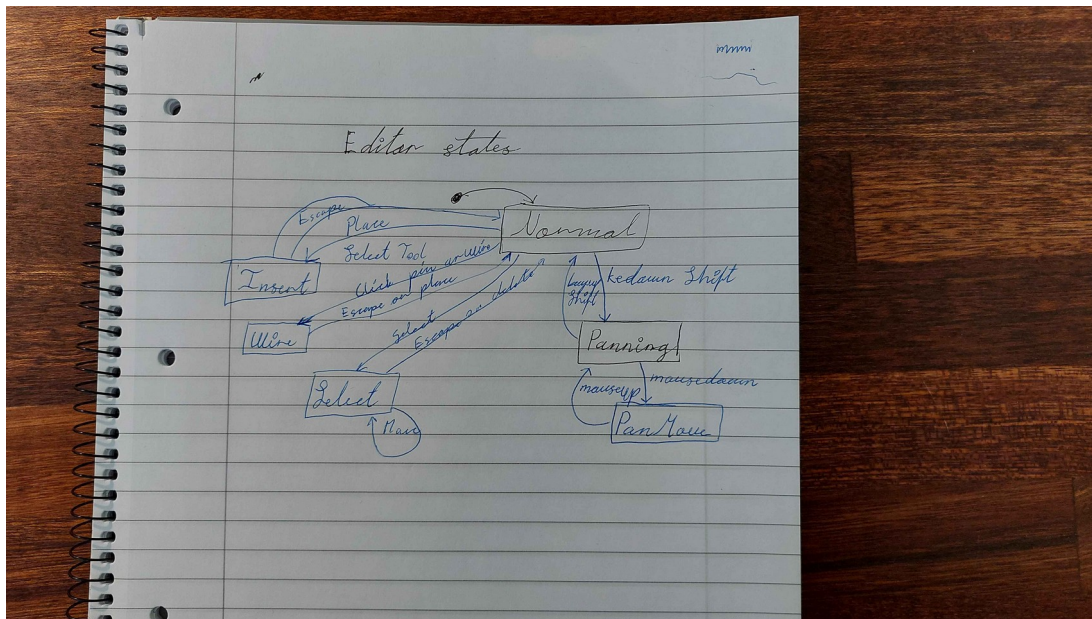 Editor states
Normal
Escape
Place
Select Tool
Insert
Click pin or wire
Escape or place
Wire
Select
Escape or delete
Select
Move
keyup Shift
kedown Shift
Panning
mouseup
mousedown
Pan Move